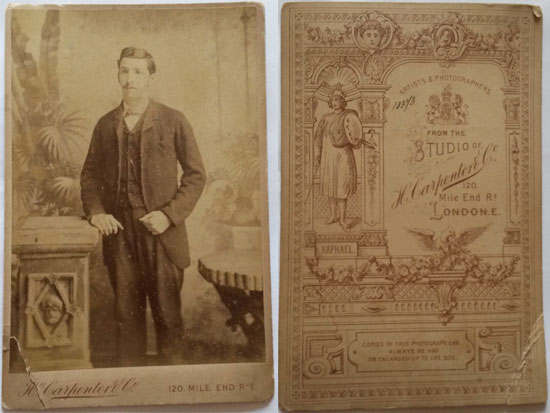 Hy. Carpenter & Co 120. MILE END Rd E.
ARTISTS & PHOTOGRAPHERS
FROM THE
STUDIO OF
H. Carpenter & Co
120
Mile End Rd
LONDON.E.
RAPHAEL
COPIES OF THIS PHOTOGRAPH CAN
ALWAYS BE HAD
OR ENLARGED UP TO LIFE SIZE.